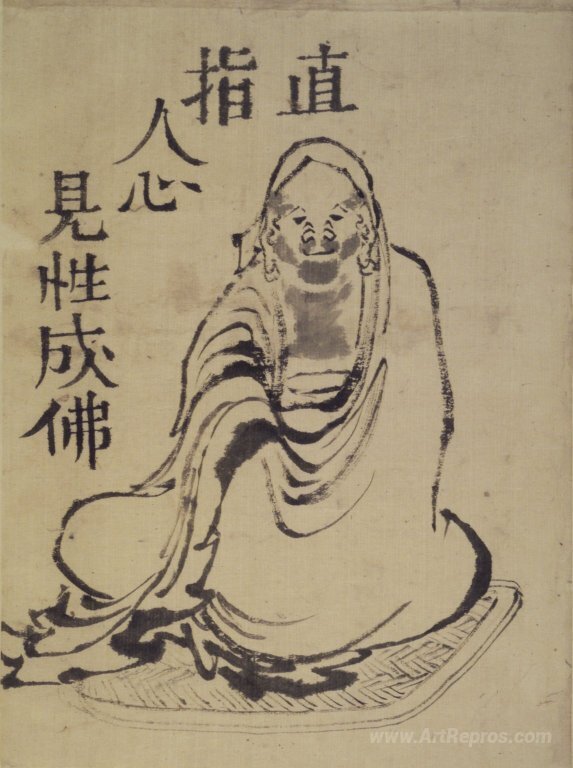 直指
人心
見性成佛
www.ArtRepros.com